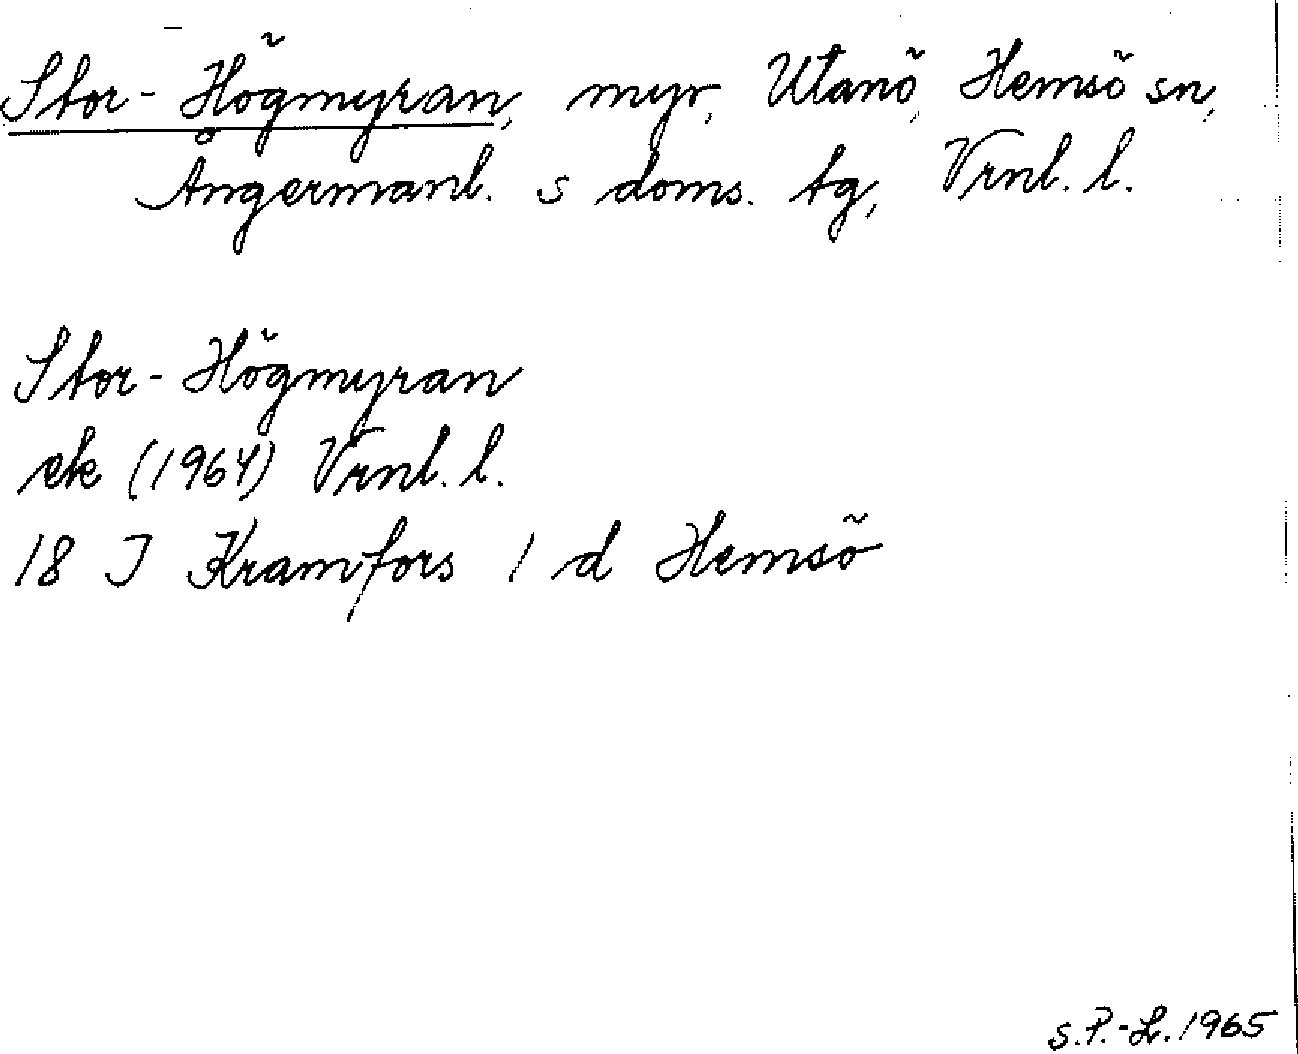 Stor-Högmyran, myr, Utanö, Hemsö sn,
Ångermanl. s doms. tg, Vrnl. l.
Stor-Högmyran
ek (1964) Vrnl. l.
18 J Kramfors 1 d Hemsö
S.P.-L. 1965